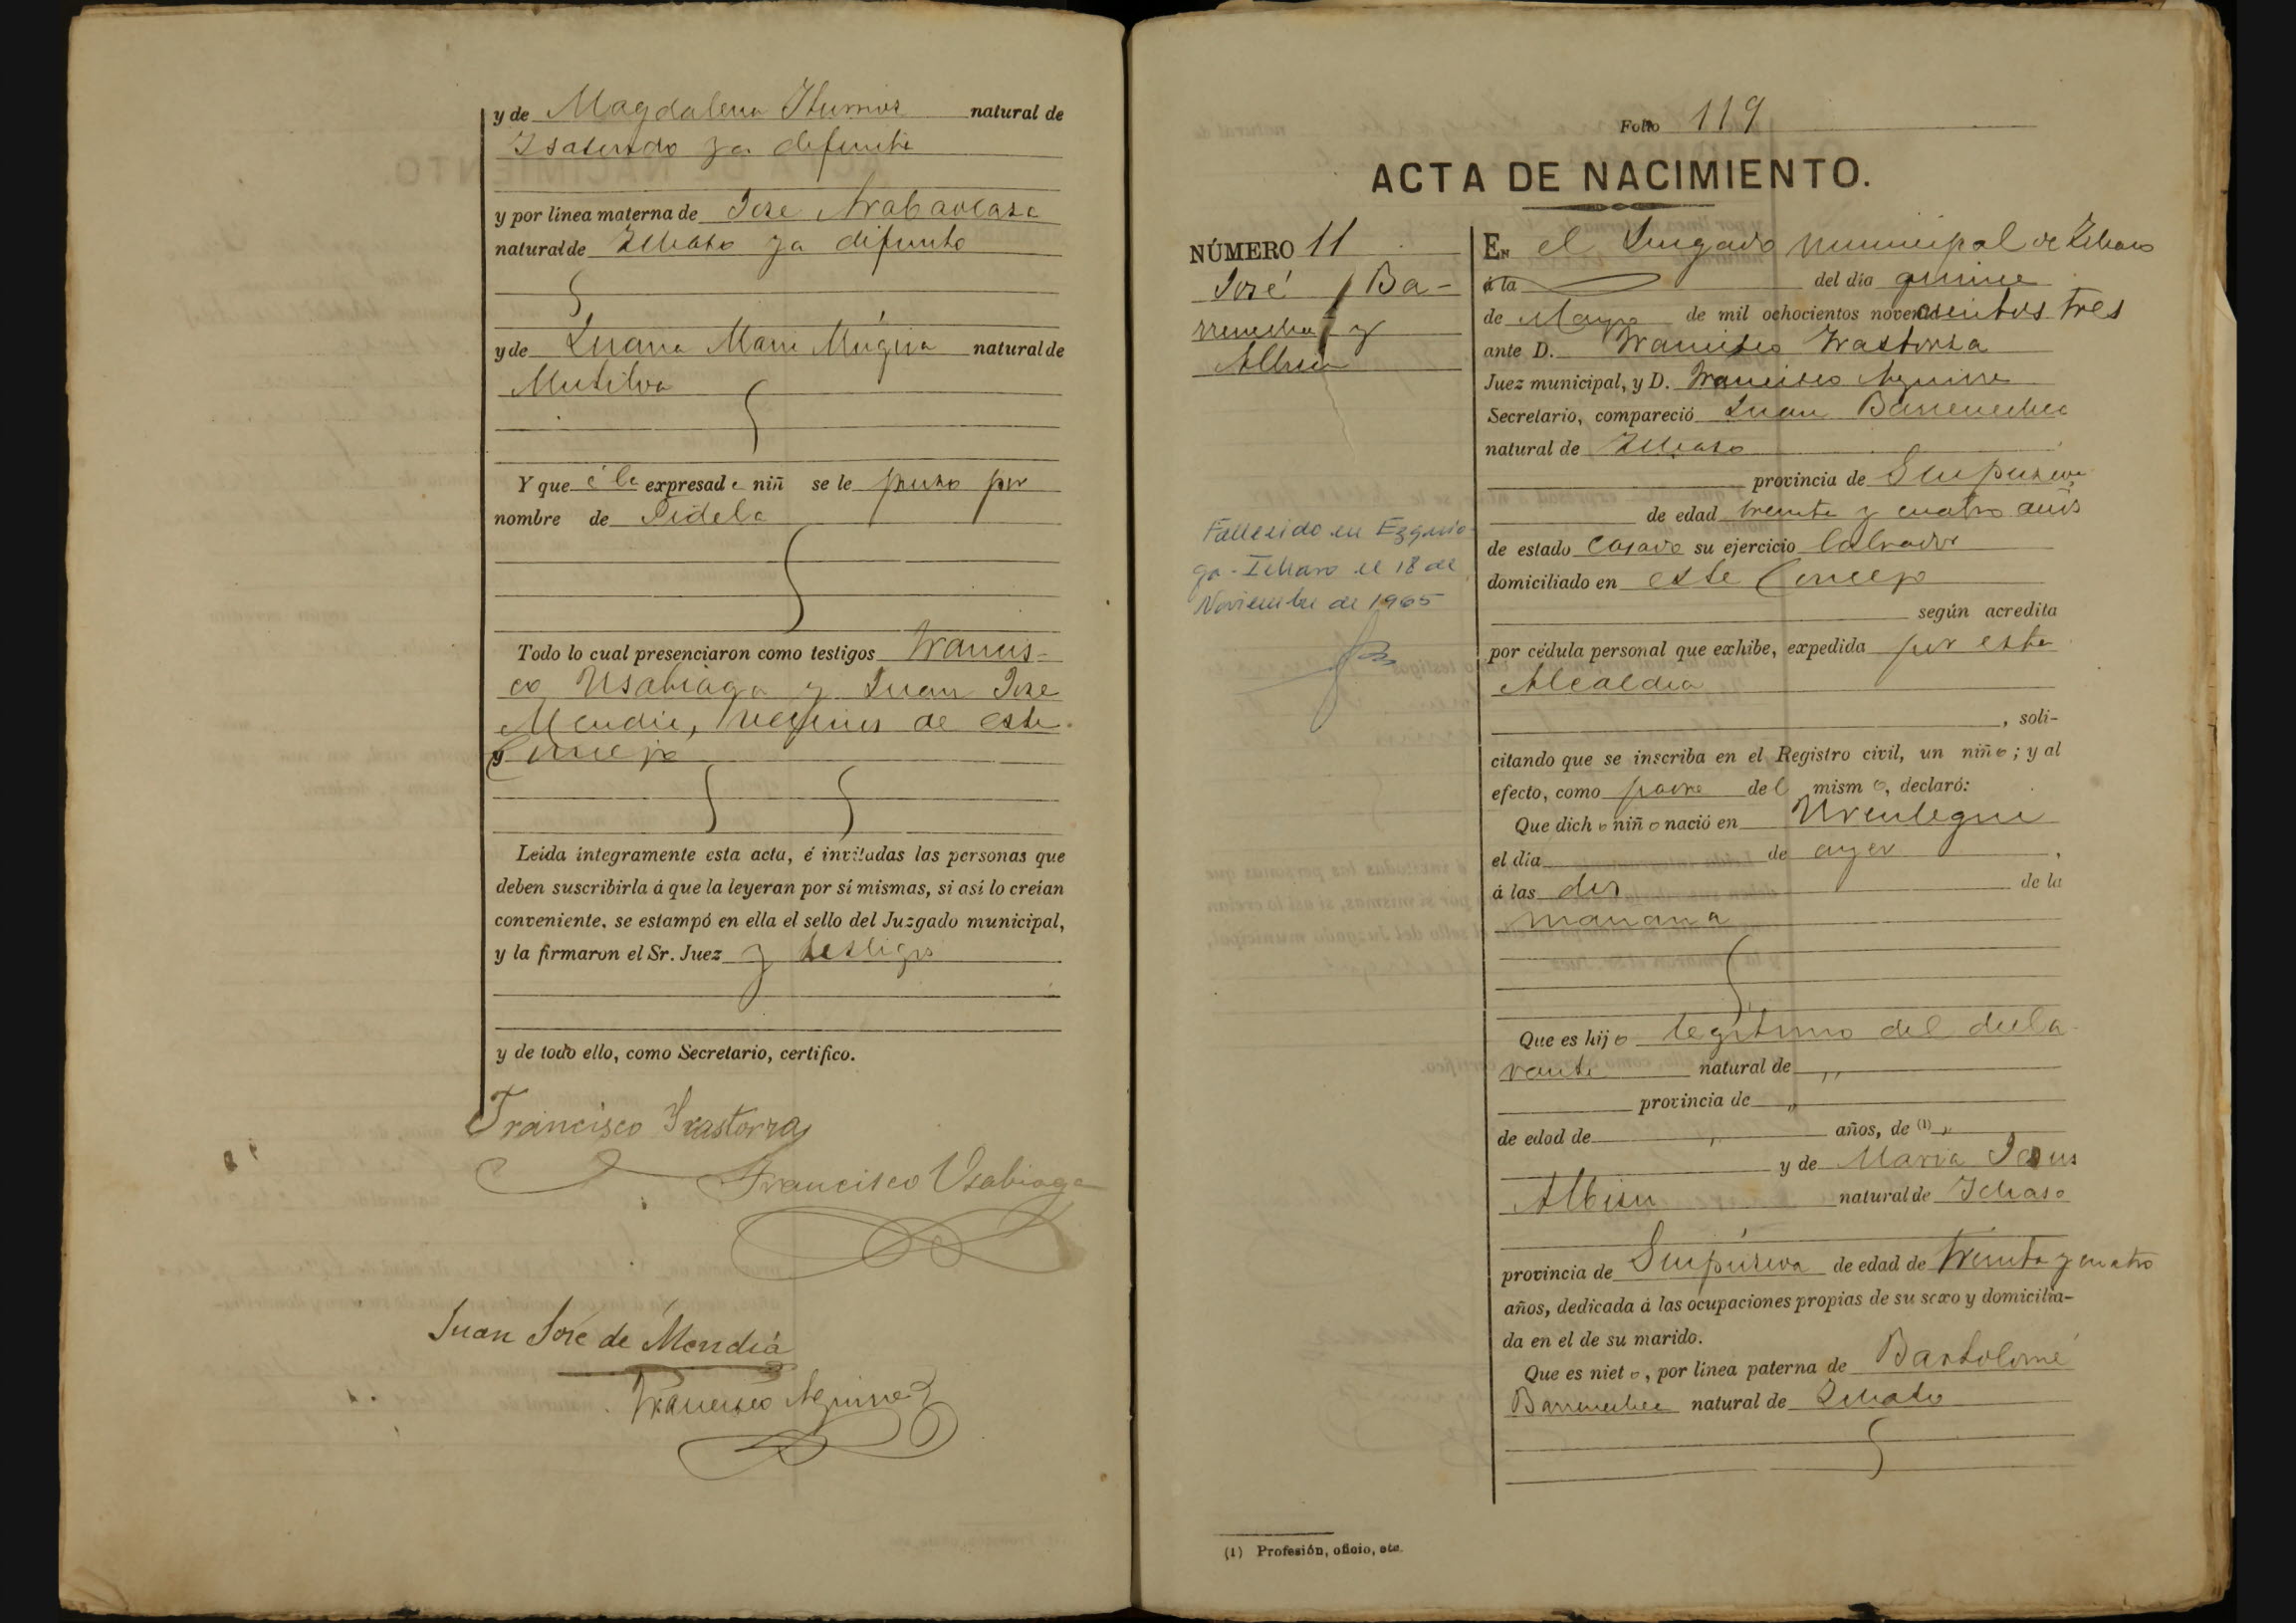 y de Magdalena Iturrioz natural de
Isasondo ya difunta
y por linea materna de Jose Arabaolaza
natural de Ichaso ya difunto
y de Juana Maria Múgica natural de
Mutiloa
Y que á la expresada niñ se le puso por
nombre de Fidela
Todo lo cual presenciaron como testigos Francis-
co Usabiaga y Juan Jose
Mendia, vecinos de este
Concejo
Leida integramente esta acta, é invitadas las personas que
deben suscribirla á que la leyeran por sí mismas, si así lo creían
conveniente, se estampó en ella el sello del Juzgado municipal,
y la firmaron el Sr. Juez y testigos
y de todo ello, como Secretario, certifico.
Francisco Irastorza
Francisco Usabiaga
Juan José de Mendia
Francisco Aguirre
Folio 119
ACTA DE NACIMIENTO.
NÚMERO 11
José Ba-
rrenechea y
Albisu
Fallecido en Ezquio-
ga-Ichaso el 18 de
Noviembre de 1965
En el Juzgado municipal de Ichaso
á la del día quince
de Mayo de mil ochocientos novecientos tres
ante D. Francisco Irastorza
Juez municipal, y D. Francisco Aguirre
Secretario, compareció Juan Barrenechea
natural de Ichaso
provincia de Guipuzcoa
de edad treinta y cuatro años
de estado casado su ejercicio labrador
domiciliado en este Concejo
según acredita
por cédula personal que exhibe, expedida por esta
Alcaldia
, soli-
citando que se inscriba en el Registro civil, un niño; y al
efecto, como padre del mismo, declaró:
Que dicho niño nació en Urcelegui
el día de ayer,
á las dos de la
mañana
Que es hijo legitimo del decla-
rante natural de "
provincia de "
de edad de " años, de (1) "
y de Maria Jesus
Albisu natural de Ichaso
provincia de Guipúzcoa de edad de treinta y cuatro
años, dedicada á las ocupaciones propias de su sexo y domicilia-
da en el de su marido.
Que es nieto, por linea paterna de Bartolomé
Barrenechea natural de Ichaso
(1) Profesión, oficio, etc.